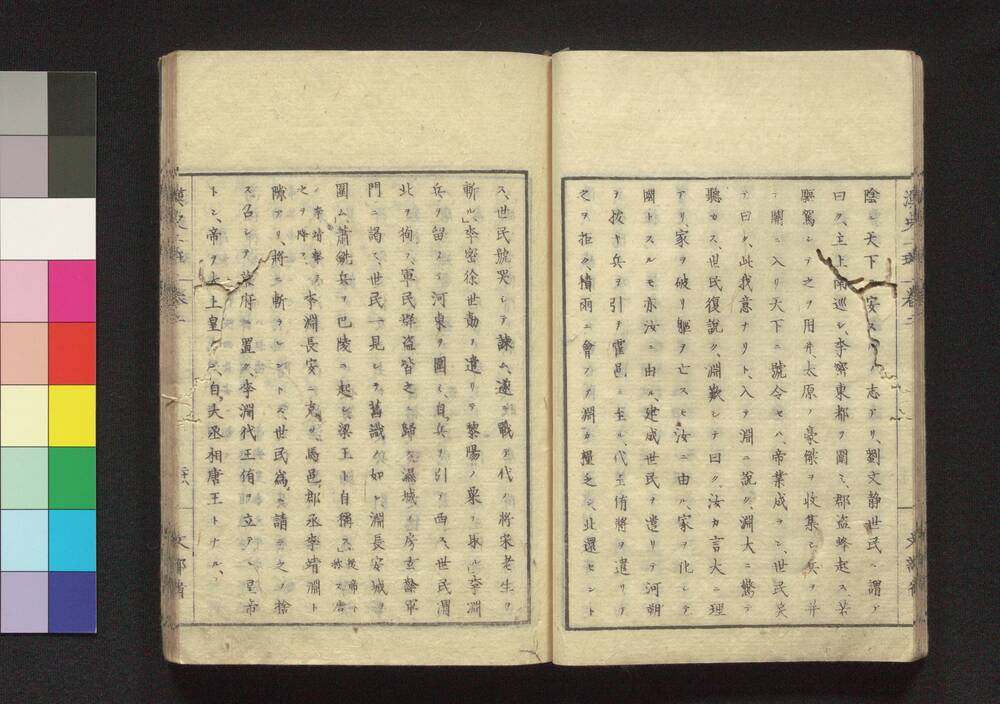 陰ニ天下ヲ安スルノ志アリ、劉文静世民ニ謂テ
曰ク、主上南巡シ、李密東都ヲ圍ミ、郡盗蜂起ス若
驅駕シテ之ヲ用井、太原ノ豪傑ヲ收集シ兵ヲ幷
テ關ニ入リ天下ニ號令セハ、帝業成ラン、世民笑
テ曰ク、此我意ナリト、入ヲ淵ニ說ク、淵大ニ驚テ
聽カス、世民復說ク、淵歎シテ曰ク、汝カ言大ニ理
アリ家ヲ破リ軀ヲ亡スモ汝ニ由ル、家ヲ化シテ
國トスルモ亦汝ニ由ル、建成世民ヲ遣リテ河朔
ヲ拔キ兵ヲ引テ霍邑ニ至ル、代王侑將ヲ遣リテ
之ヲ拒ク、積雨ニ會フテ淵カ糧乏シ、北還セント
ス、世民號哭シテ諫ム、遂ニ戰テ代ノ將宋老生ヲ
斬ル、李密徐世勣ヲ遣リテ黎陽ノ粟ヲ取ル、李淵
兵ヲ留メテ河東ヲ圍ミ、自兵ヲ引テ西ス、世民渭
北ヲ徇フ、軍民群盗皆之ニ歸ス、隰城ノ房玄齡軍
門ニ謁ス、世民一見シテ舊識ノ如シ、淵長安城ヲ
圍ム、蕭銑兵ヲ巴陵ニ起シ梁王ト自稱ス、後帝ト稱ス唐
ノ李靖擊テ之ヲ降ス、李淵長安ニ克ツ、馬邑郡丞李靖淵ト
隙アリ、將ニ斬ラレントス、世民爲ニ請テ之ヲ捨
ス、召シテ幕府ニ置ク、李淵代王侑ヲ立テヽ皇帝
トシ、帝ヲ太上皇トシ、自大丞相唐王トナル、
漢史一班 卷二
文部省